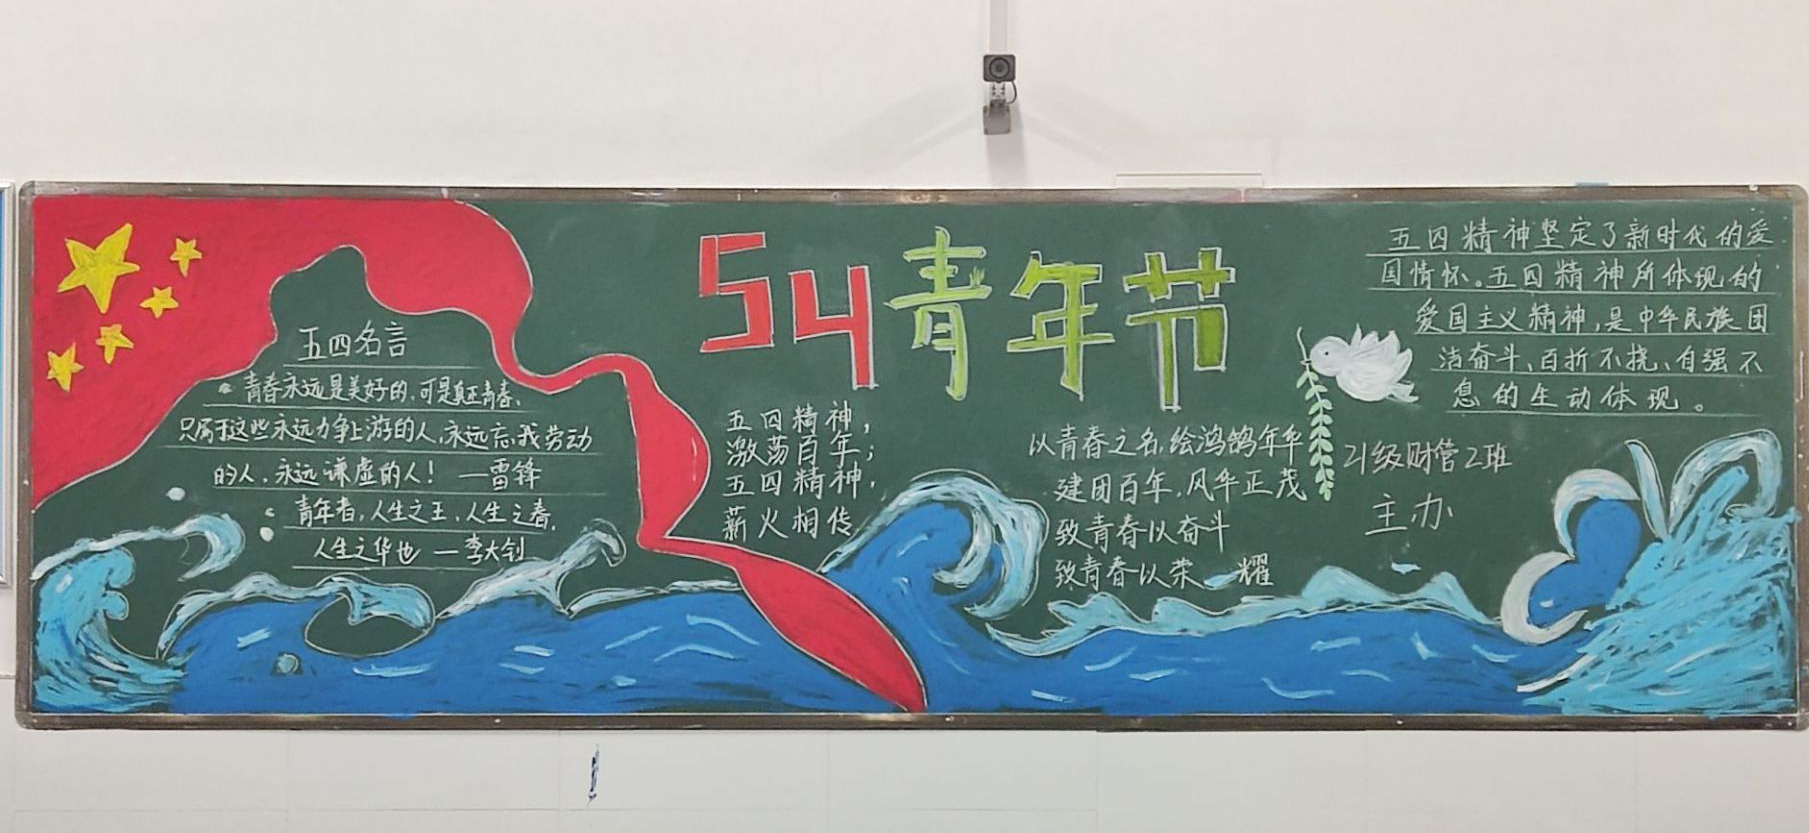 54青年节
五四名言
青春永远是美好的,可是真正青春、
只属于这些永远力争上游的人,永远忘我劳动
的人,永远谦虚的人!—雷锋
青年者,人生之王,人生之春,
人生之华也 —李大钊
五四精神,
激荡百年;
五四精神,
薪火相传
以青春之名,绘鸿鹄年华
建团百年,风华正茂
致青春以奋斗
致青春以荣耀
五四精神坚定了新时代的爱
国情怀。五四精神所体现的
爱国主义精神,是中华民族团
洁奋斗、百折不挠、自强不
息的生动体现。
21级财管2班
主办